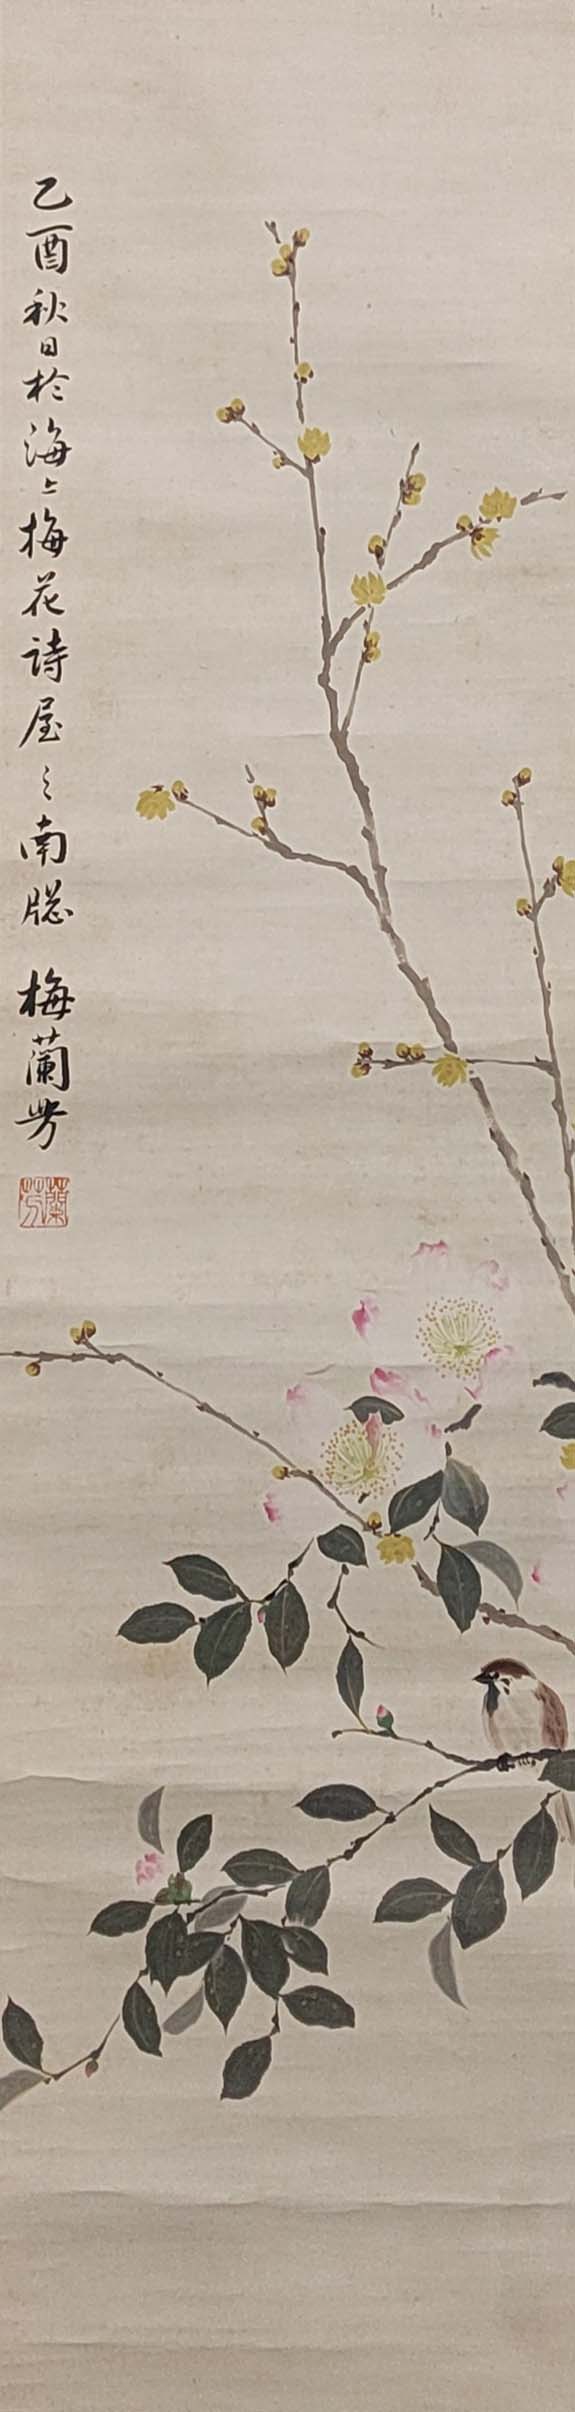 乙酉秋日於海上梅花詩屋之南牕 梅蘭芳
蘭芳